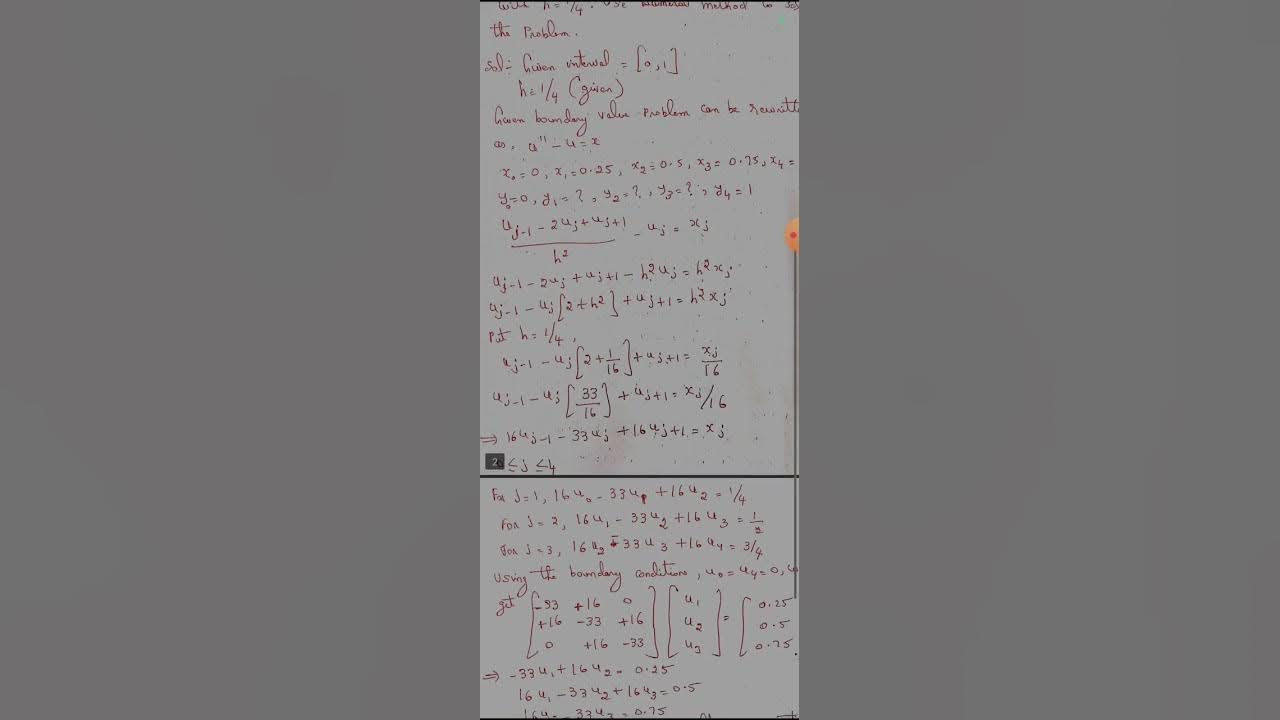 with h = 1/4. Use Numerical method to sol
the Problem.
Sol:- Given interval = [0, 1]
h = 1/4 (given)
Given boundary value Problem can be rewritt
as, u'' - u = x
x₀ = 0, x₁ = 0.25, x₂ = 0.5, x₃ = 0.75, x₄ =
y₀ = 0, y₁ = ?, y₂ = ?, y₃ = ?, y₄ = 1
(u_{j-1} - 2u_j + u_{j+1})/h² - u_j = x_j
u_{j-1} - 2u_j + u_{j+1} - h²u_j = h²x_j
u_{j-1} - u_j[2 + h²] + u_{j+1} = h²x_j
Put h = 1/4,
u_{j-1} - u_j[2 + 1/16] + u_{j+1} = x_j/16
u_{j-1} - u_j[33/16] + u_{j+1} = x_j/16
⇒ 16u_{j-1} - 33u_j + 16u_{j+1} = x_j
2 ≤ j ≤ 4
For j = 1, 16u₀ - 33u₁ + 16u₂ = 1/4
For j = 2, 16u₁ - 33u₂ + 16u₃ = 1/2
For j = 3, 16u₂ - 33u₃ + 16u₄ = 3/4
Using the boundary conditions, u₀ = u₄ = 0, w
get [-33 +16 0] [u₁] = [0.25]
[+16 -33 +16] [u₂] [0.5]
[0 +16 -33] [u₃] [0.75]
⇒ -33u₁ + 16u₂ = 0.25
16u₁ - 33u₂ + 16u₃ = 0.5
16u₂ - 33u₃ = 0.75